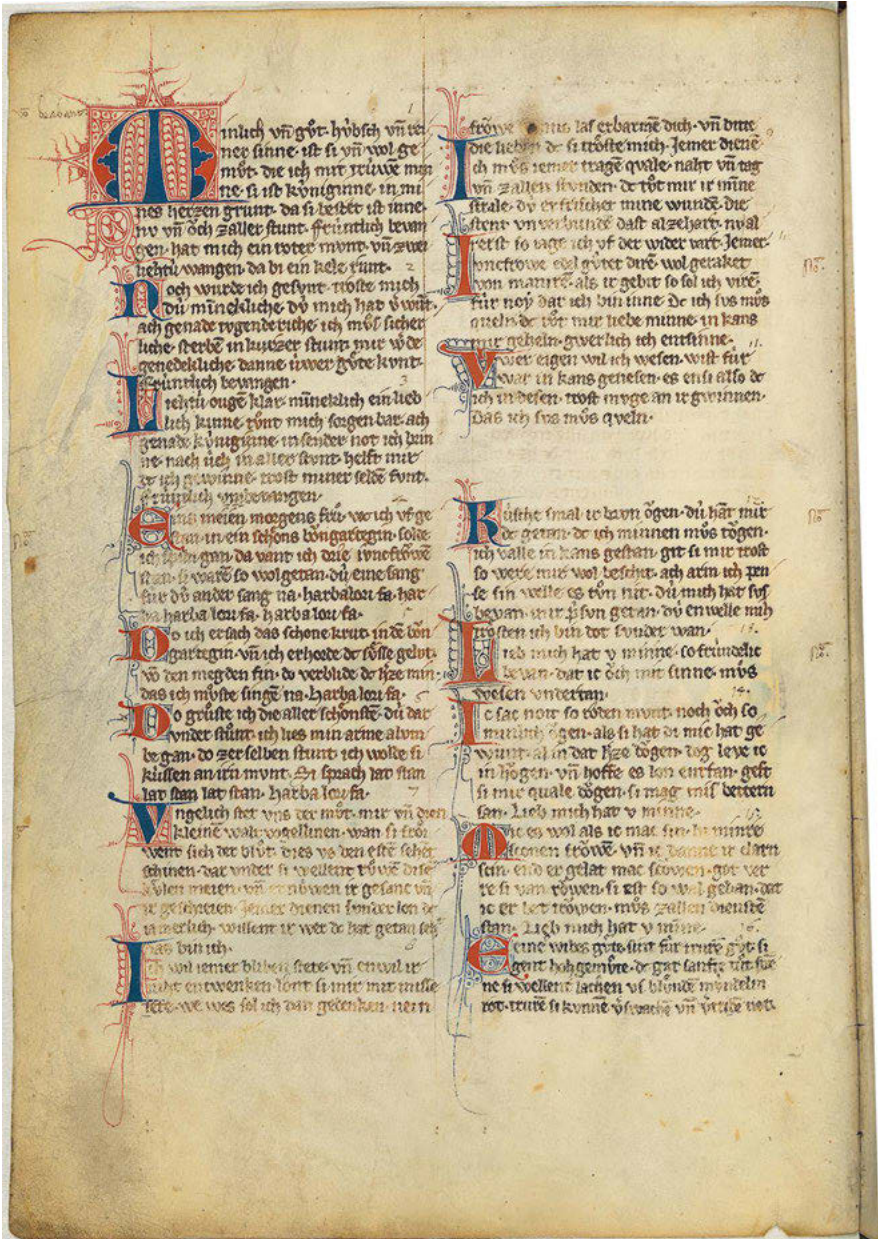 Minlich vn̄ gůt· húbsch vn̄ rei
ner sinne· ist si vn̄ wol ge
můt· die ich mit trúwe mei
ne· si ist kúniginne· in mi
nes herzen grunt· da si bestet ist inne·
nv vn̄ ŏch zaller stunt· frúntlich bevan
gen· hat mich ein roter munt· vn̄ zwei
liehtú wangen· da bi ein kele runt·
Noch wurde ich gesunt· troste mich
dú minekliche· dú mich hat v̓wūt·
ach genade tvgende riche· ich můs sicher
liche· sterbē in kurzer stunt· mir w̓de
genedekliche· danne úwer gůte kunt·
frúntlich bevangen·
Liehtú ougē klar· minneklich ein lieb
lich kinne· tůnt mich sorgen bar· ach
genade kúniginne· in sender not ich brin
ne· nach úch in aller stunt· helft mir
dc ich gewinne· trost miner selde funt·
frúntlich
Eins meiēn morgens frů· wc ich vf ge
stan· in ein schöns bŏngartegin· solde
ich spiln gan· da vant ich drie iuncfrŏwē
stan· si warē so wolgetan· dú eine sang
fúr dú ander sang na· harbalori fa· har
ba harba lori fa· harba lori fa·
Do ich ersach das schöne krut· in dē bŏn
gartegin· vn̄ ich erhorte dc sůsse gelut·
vō den megden fin· do verblide dc h̓ze min·
das ich můste singē na· harba lori fa·
Do grůste ich die aller schönstē· dú dar
vnder stůnt· ich lies min arme alvm
be gan· do zer selben stunt· ich wolde si
kússen an irn munt· si sprach lat stan
lat stan lat stan· harba lori fa·
Vngelich stet vns der můt· mir vn̄ dien
kleinē walt vogellinen· wan si frŏi
went sich der blůt· dies vs den estē sehēt
schinen· dar vnder si wellent růwē dise
kůlen meien· vn̄ ernúwen ir gesanc vn̄
ir geschreien· Jemer dienen sunder lon dc
ist iamerlich· wellent ir wer dc hat getan seht
das bin ich·
Ich wil iemer bliben stete· vn̄ en wil ir
niht entwenken· lont si mir mit misse
tete· we wes sol ich dan gedenken· nein
frŏwe Venus las erbarmē dich· vn̄ bitte
die lieben dc si trŏste mich· Jemer dienē·
Ich můs iemer tragē quale· naht vn̄ tag
vn̄ zallen stunden· dc tůt mir ir mīne
strale· dú erfrischet mine wundē· die
stent vn verbundē dast alzehart· nv al
rerst so iage ich vf der wider vart· Jemer·
Iuncfrowe edel gůter dirē· wol geraket
von manirē· als ir gebit so sol ich virē·
fúr noy dat ich bin inne· Dc ich svs můs
queln· dc tůt mir liebe minne· in kans
nit geheln· gwerlich ich entsinne·
Vwer eigen wil ich wesen· wist fúr
war in kans genesen· es ensi also dc
ich in desen· trost můge an ir gwinnen·
Das ich svs můs qveln·
Kúsche smal ir brvn ŏgen· dú hāt mir
dc getan· dc ich minnen můs tŏgen·
ich valle in kans gestan· git si mir trost
so were mir wol beschit· ach arm ich pen
se sin welle es tůn nit· dú mich hat svs
bevan· mit p̓sun getan· dú en welle mih
trŏsten ich bin dot svnder wan·
Lieb mich hat v minne· so frúndelic
bevan· dat ic ŏch mit sinne· můs
wesen vndertan·
Ic sac noit so rŏden munt· noch ŏch so
minlich ŏgen· als si hat di mic hat ge
wunt· al in dat h̓ze dŏgen· dog leve ic
in hŏgen· vn̄ hoffe es lon entfan· geft
si mir quale dŏgen· si mag mis bettern
san· Lieb mich hat v minne·
Mir es wol als ic mac sin· bi minre
sconen frŏwē· vn̄ ic danne ir clarn
scin· end er gelat mac scŏwen· got ver
re si van rŏwen· si est so wol gedan· dat
ic er bet trŏwen· můs zallen dienstē
stan· Lieb mich hat v minne·
Reine wibes gůte sint fúr trurē gůt· si
gent hoh gemůte· dc gar sanfte tůt swē
ne si wellent lachen vs blůndē mvndelin
rot· trurē si kvnnē